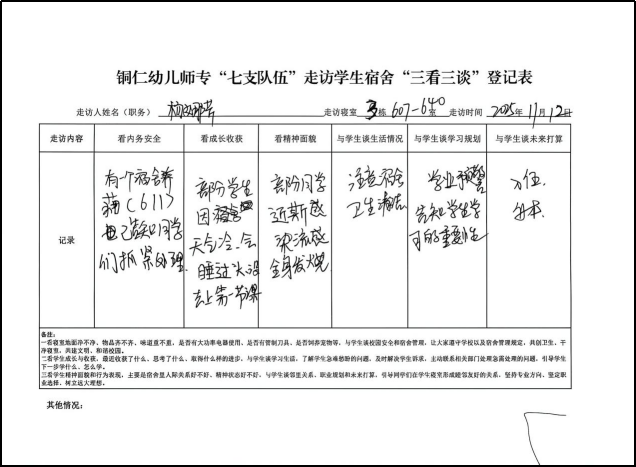 铜仁幼儿师专“七支队伍”走访学生宿舍“三看三谈”登记表
走访人姓名（职务） 走访寝室 栋 607-640 室 走访时间 2025年 11月 12日
走访内容 看内务安全 看成长收获 看精神面貌 与学生谈生活情况 与学生谈学习规划 与学生谈未来打算
记录
有一个宿舍养
猫（611）
已告知同学
们抓紧处理
部分学生
因宿舍
天气冷、会
睡过头没
去上第一节课
部分同学
近期感
染流感
全身发烧
注意宿舍
卫生清洁
学业预警
告知学生学
习的重要性
入伍、
升本
备注：
一看寝室地面净不净、物品齐不齐、味道重不重，是否有大功率电器使用、是否有管制刀具、是否饲养宠物等，与学生谈校园安全和宿舍管理，让大家遵守学校以及宿舍管理规定，共创卫生、干
净寝室，共建文明、和谐校园。
二看学生成长与收获，最近收获了什么、思考了什么、取得什么样的进步，与学生谈学习生活，了解学生急难愁盼的问题，及时解决学生诉求，主动联系相关部门处理急需处理的问题，引导学生
下一步学什么、怎么学。
三看学生精神面貌和行为表现，主要是宿舍里人际关系好不好、精神状态好不好，与学生谈邻里关系、职业规划和未来打算，引导同学们在学生寝室形成睦邻友好的关系，坚持专业方向、坚定职
业选择，树立远大理想。
其他情况：